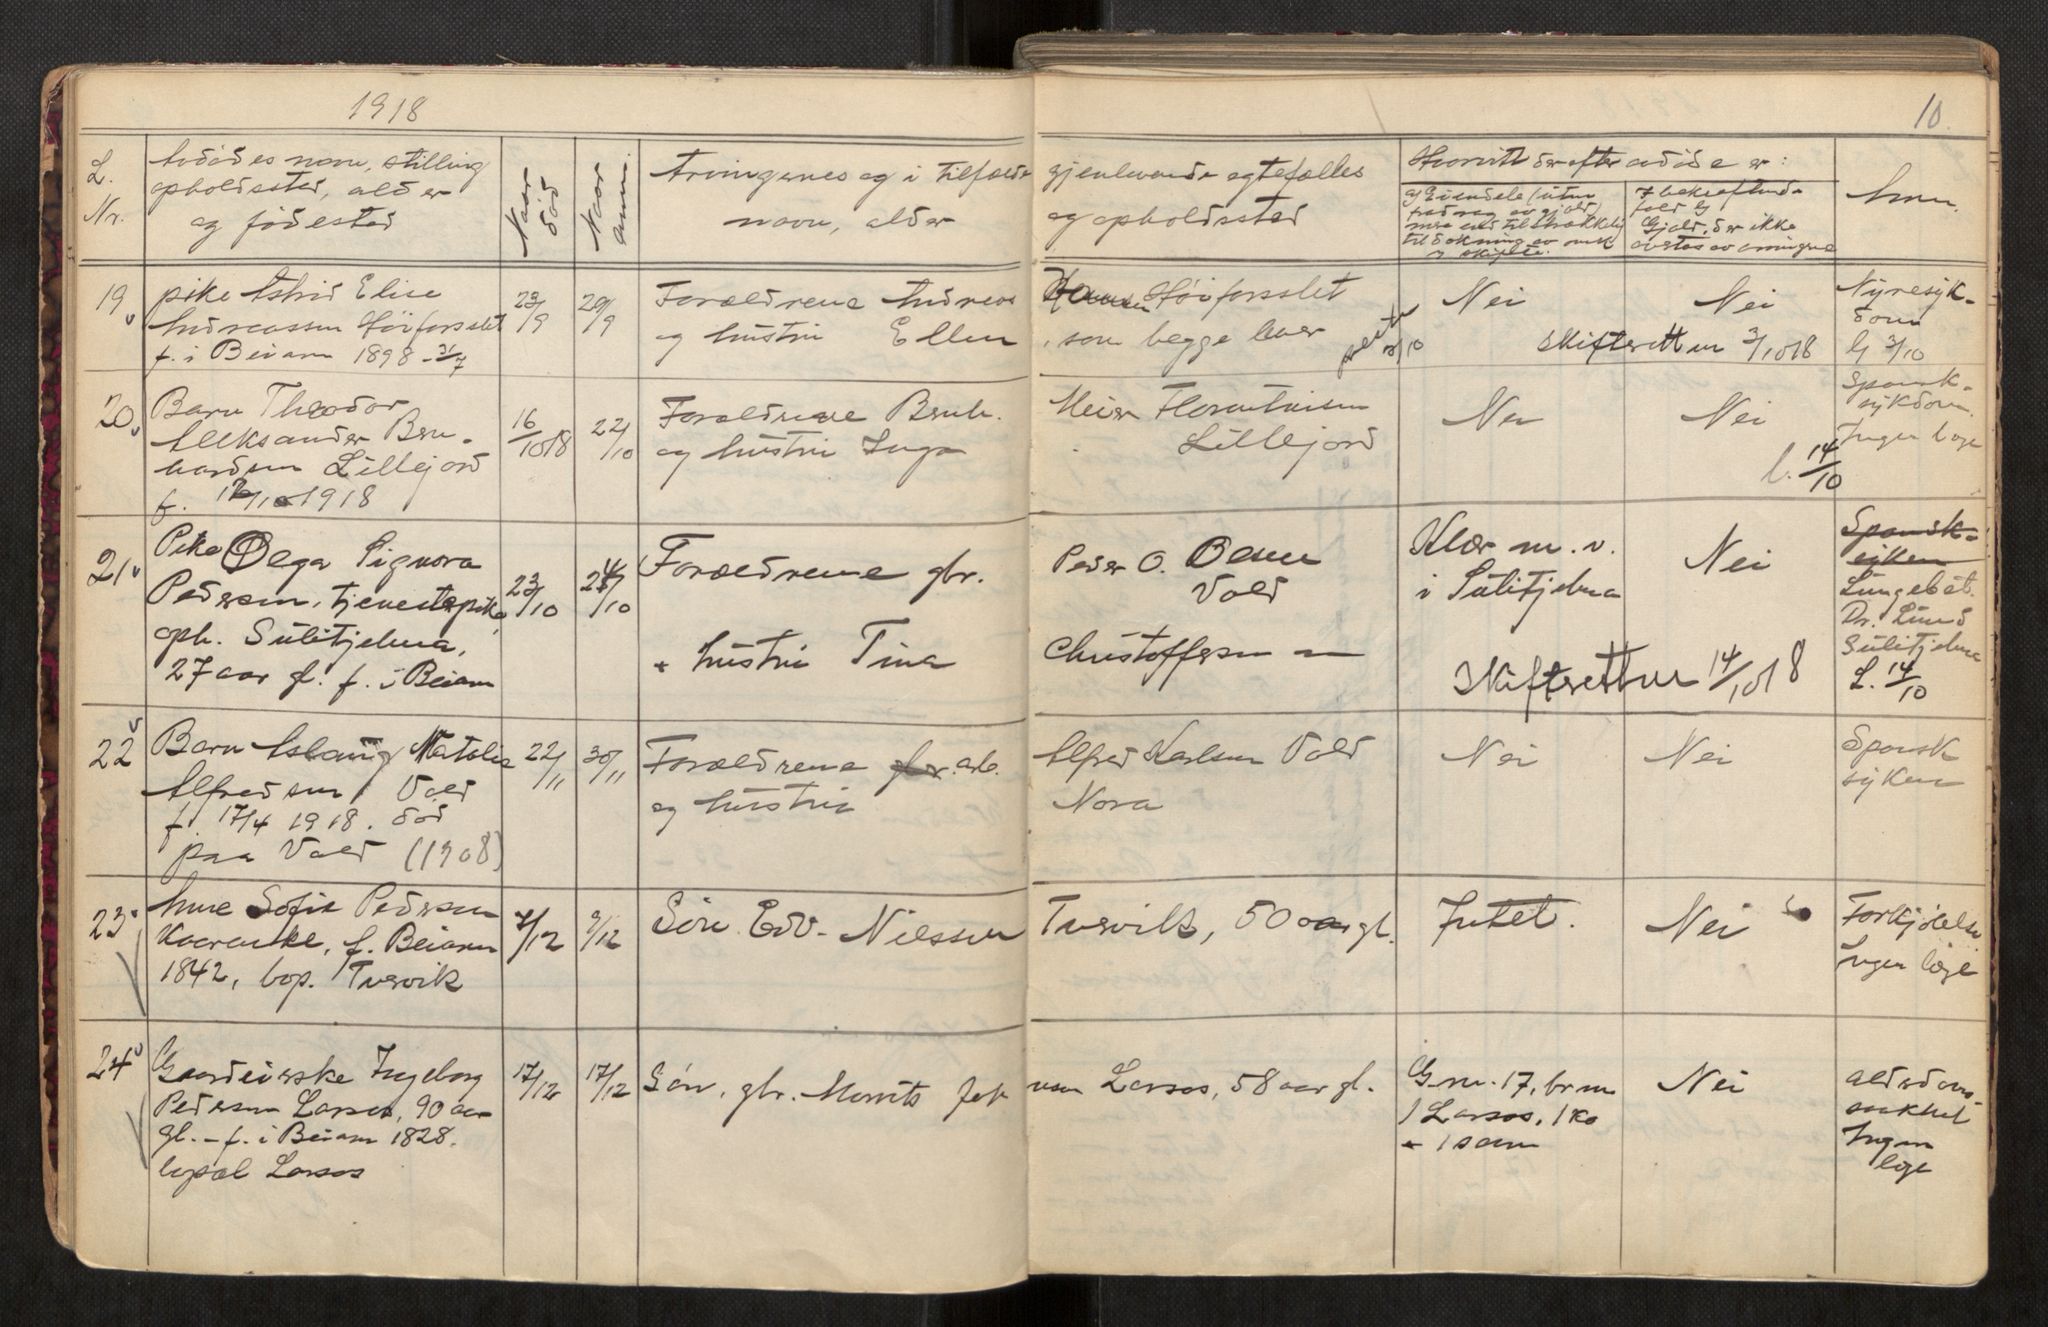 1918
10.
L.
Nr.
Avdødes navn, stilling
opholdssted, alder
og fødested
Naar
død
Naar
anm.
Arvingernes og i tilfælde gjenlevende egtefælles
navn, alder og opholdssted
Hvorvidt der efter avdøde er:
Anm.
19
pike Astrid Elise
Andreassen Høiforsslet
f. i Beiarn 1898 - 31/7
23/9
29/9
Forældrene Andreas
Høiforsslet
og hustru Ellen
, som begge lever
Nei
Nei
Skifteretten 3/10 18
Nyresyk-
dom
3/10
20
Barn Theodor
Aleksander Bern-
hardsen Lillejord
f. 12/10 1918
16/10 18
22/10
Forældrene Bernh. Meier Florentinsen
og hustru Inga Lillejord
Nei
Nei
Spansk-
sykdom.
Ingen læge
l. 14/10
21
Pike Olga Signora
Pedersen, tjenestepike,
oph. Sulitjelma,
27 aar gl. f. i Beiarn
23/10
24/10
Forældrene gbr. Peder O.
Vold
+ hustru Tina Christoffersen
Klær m. v.
i Sulitjelma
Nei
Skifteretten 14/10 18
Spansk-
syken
Lungebet.
Dr. Lund
Sulitjelma
L. 14/10
22
Barn Aslaug Natalie
Alfredsen Vold
f. 17/4 1918. død
paa Vold (1908)
22/11
30/11
Forældrene gbr. arb. Alfred Karlsen Vold
og hustru Nora
Nei
Nei
Spansk
syken
23
Anne Sofie Pedersen
Kværanke, f. Beiarn
1842, bop. Tvervik
7/12
9/12
Søn Edv. Nilssen Tvervik, 50 aar gl.
Intet.
Nei
Forkjølelse
Ingen læge
24
Gaardeierske Ingeborg
Pedersen Larsos, 90 aar
gl. - f. i Beiarn 1828.
bopæl Larsos
17/12
17/12
Søn, gbr. Morits
Larsos, 58 aar gl.
G.nr. 17, br.nr
1 Larsos, 1 ko
+ 1 sau
Nei
alderdoms-
svakhet
Ingen
læge